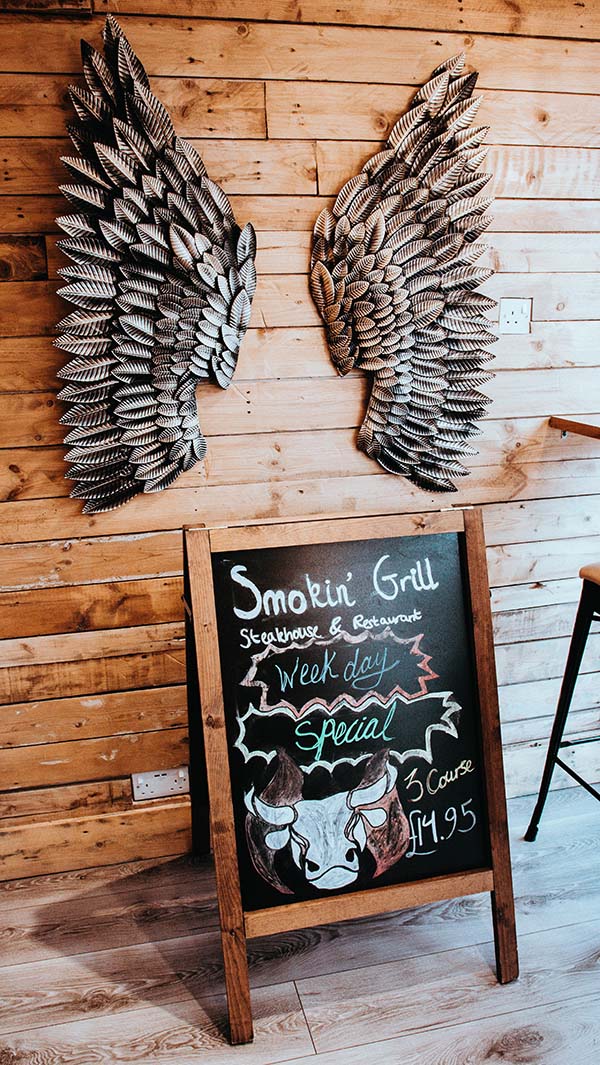 Smokin' Grill
Steakhouse & Restaurant
Week day
Special
3 Course
£14.95